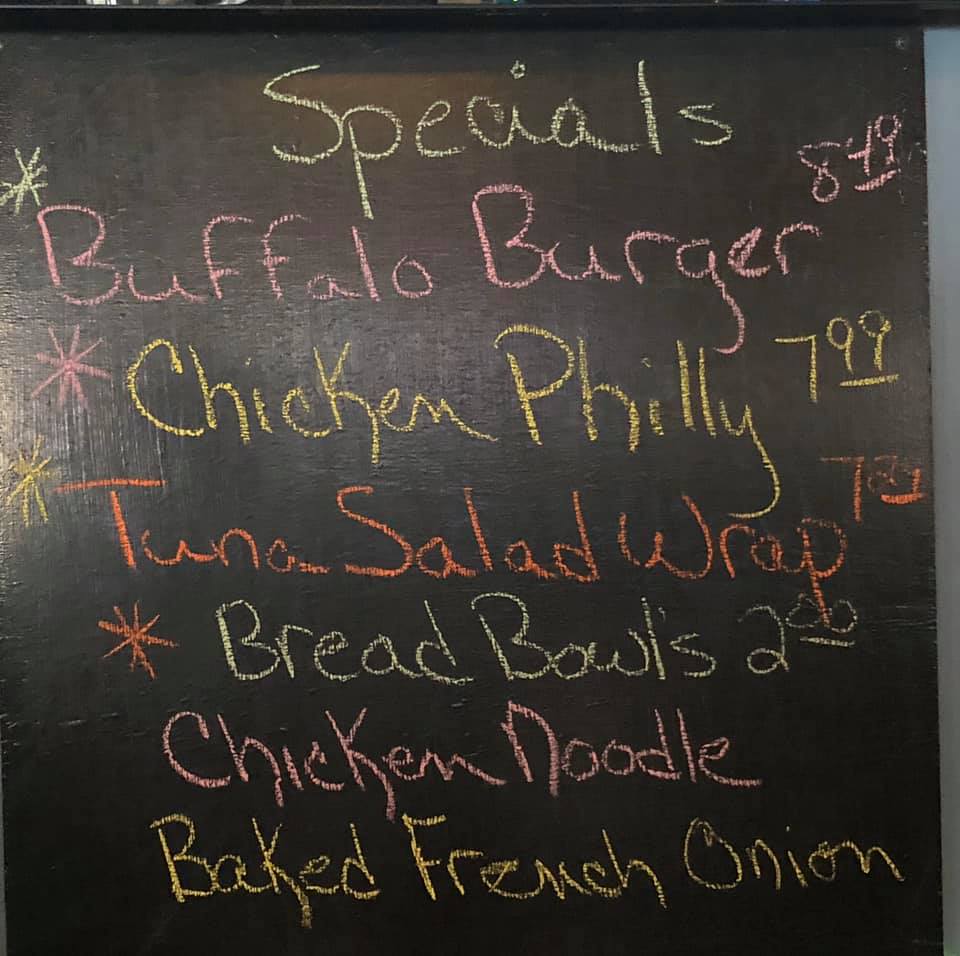 Specials
* Buffalo Burger 8.49
* Chicken Philly 7.99
* Tuna Salad Wrap
* Bread Bowl's 2.00
Chicken Noodle
Baked French Onion